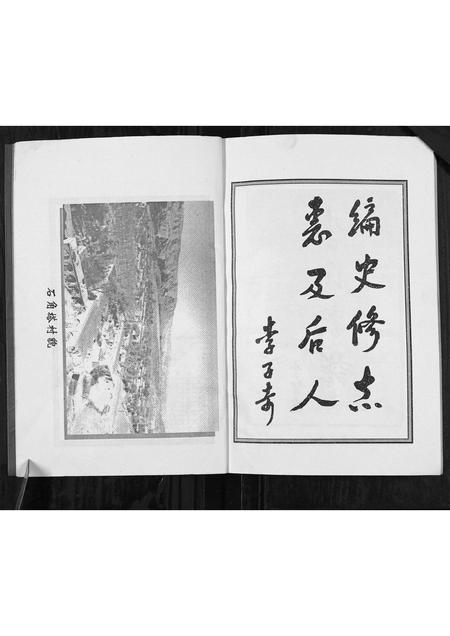 编史修志
惠及后人
李子奇
石角塔村貌